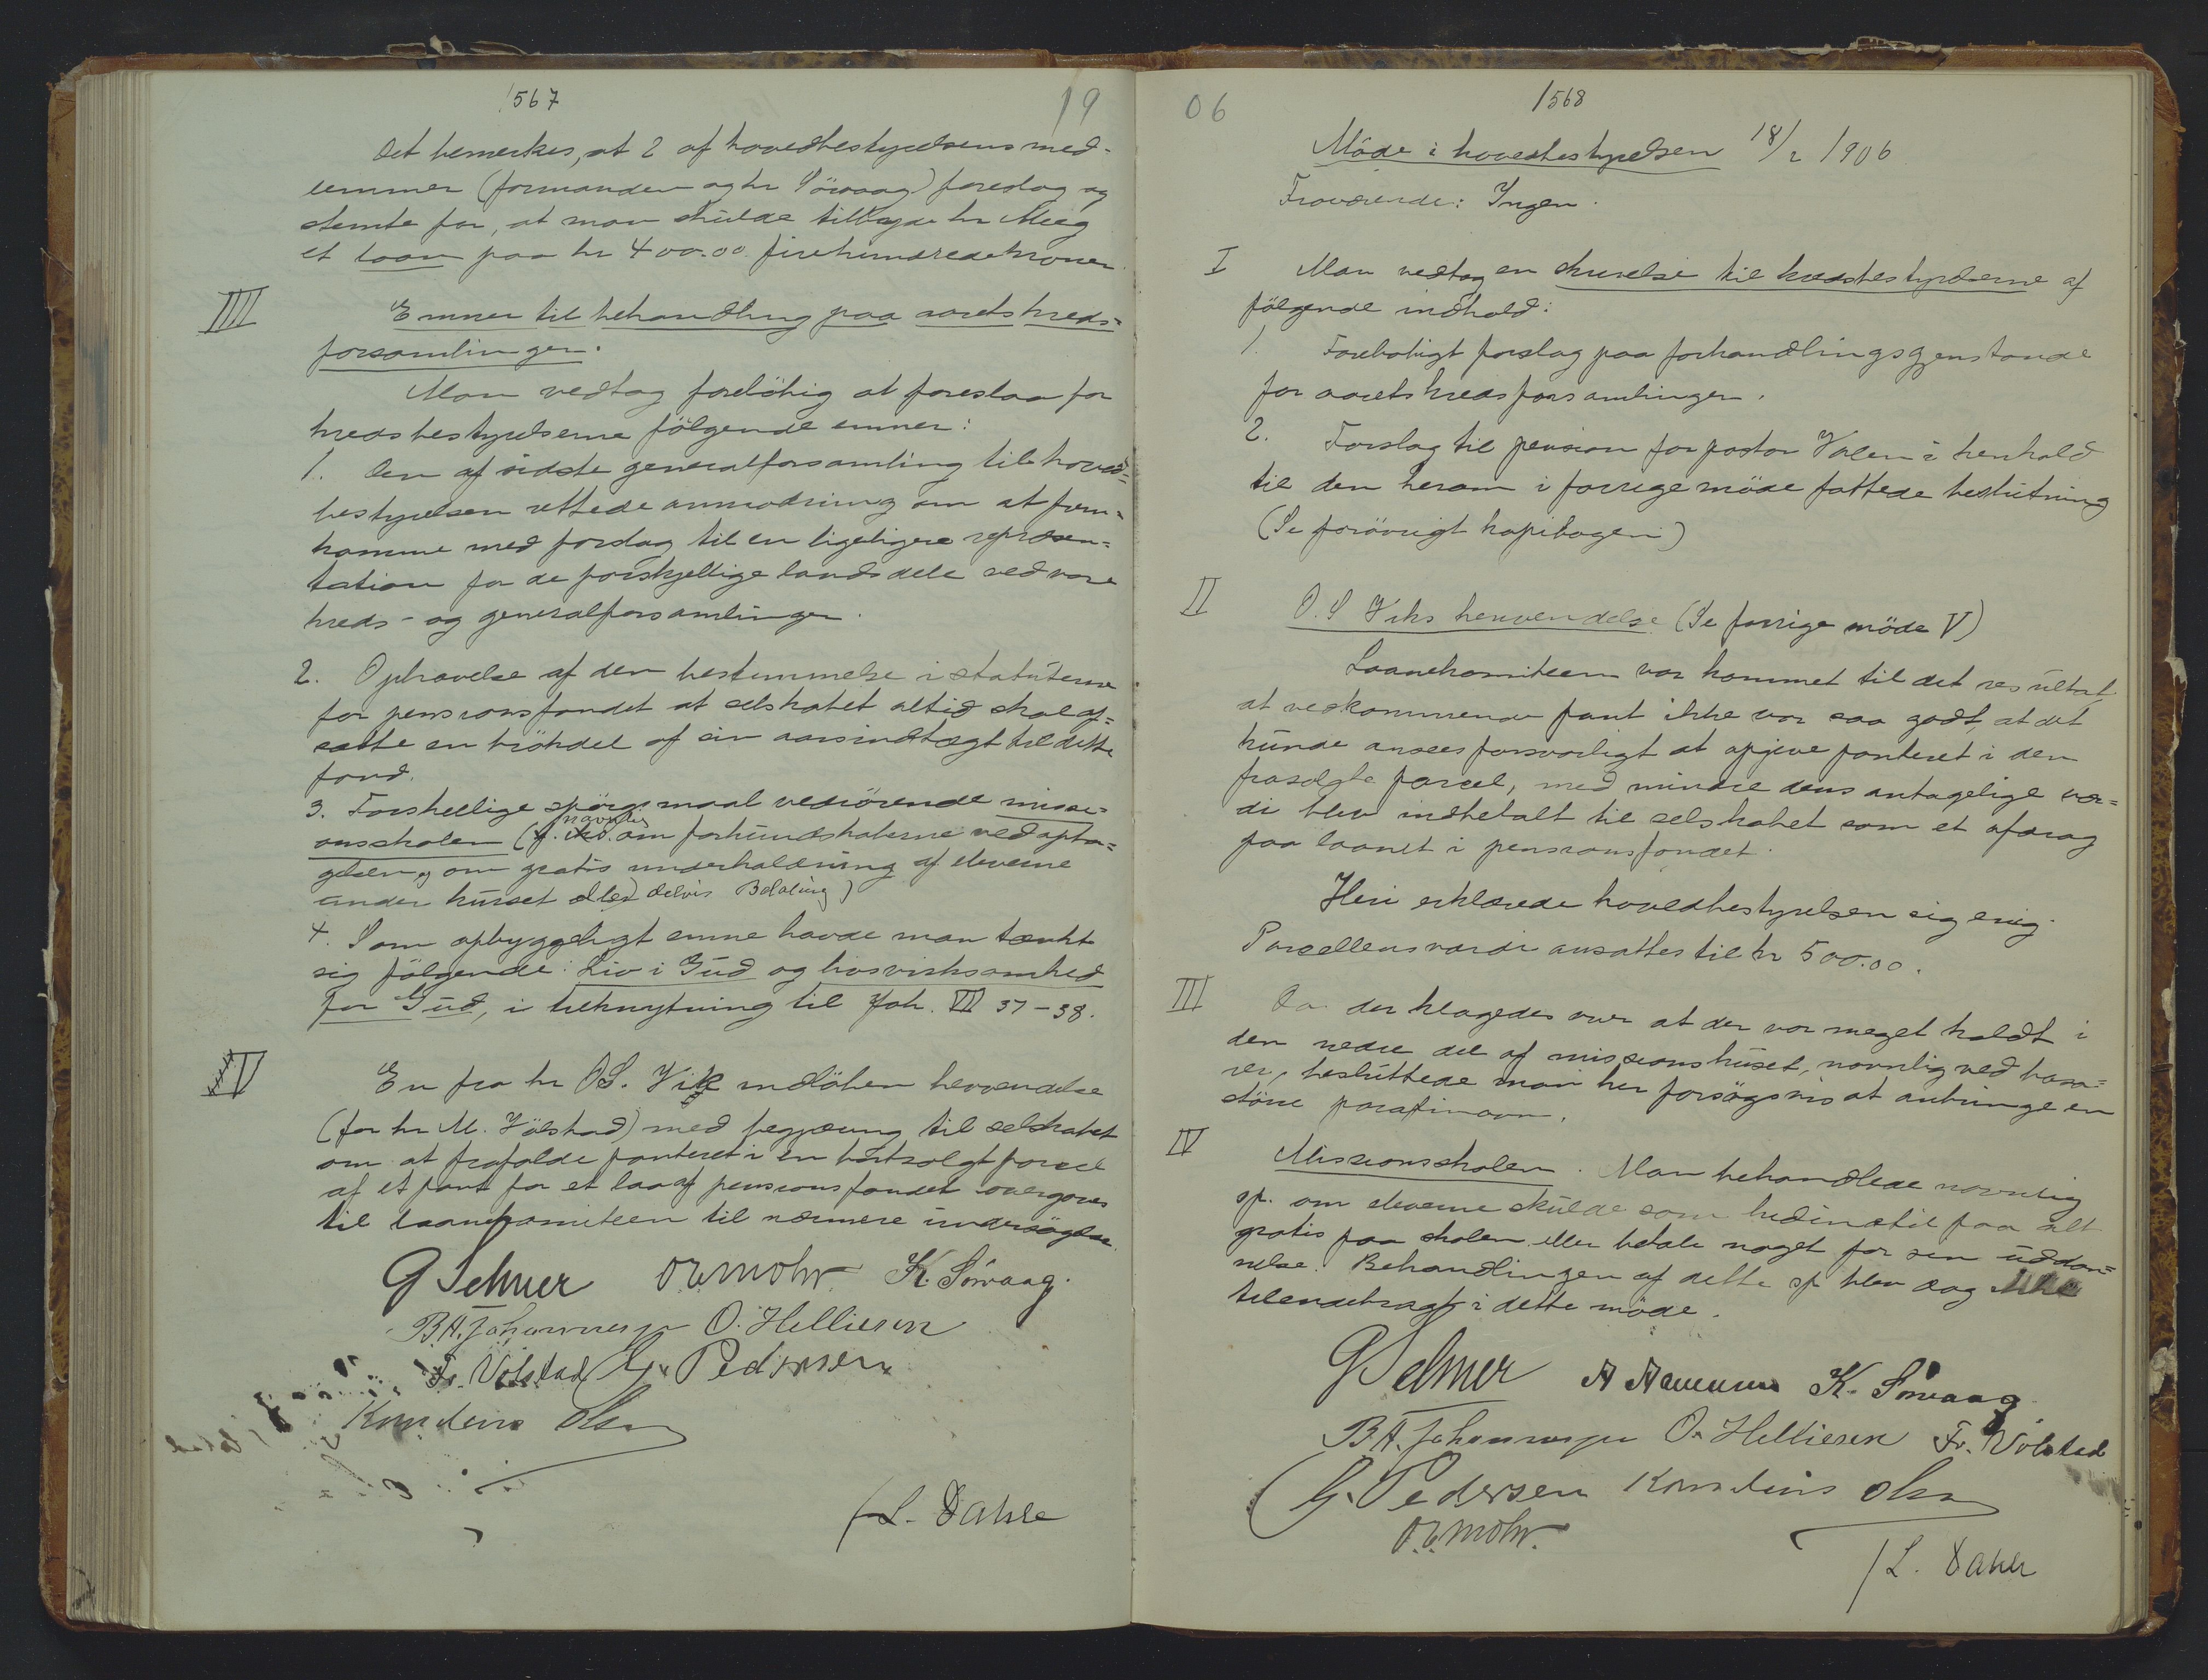 1567
19
Det bemerkes, at 2 af hovedbestyrelsens med-
lemmer (formanden og hr Sövaag) foreslog og
stemte for, at man skulde tilbyde hr Meeg
et laan paa kr 400.00 firehundrede kroner.
III
Emner til behandling paa aarets kreds-
forsamlinger.
Man vedtog foreløbig at foreslaa for
kredsbestyrelserne følgende emner:
1. Den af sidste generalforsamling til hoved-
bestyrelsen rettede anmodning om at frem-
komme med forslag til en ligeligere repræsen-
tation for de forskjellige landsdele ved vore
kreds- og generalforsamlinger.
2. Ophævelse af den bestemmelse i statuterne
for pensionsfondet at selskabet altid skal af-
sætte en brökdel af sin aarsindtægt til dette
fond.
3. Forskellige spörgsmaal vedrörende missi-
onsskolen (navnlig om forkundskaberne ved opta-
gelsen, om gratis underholdning af eleverne
under kurset eller delvis Betaling)
4. Som opbyggeligt emne havde man tænkt
sig følgende: Liv i Gud og livsvirksomhed
for Gud, i tilknytning til Joh. VII 37-38.
IV
En fra hr O.S. Vik indløben henvendelse
(for hr M. Völstad) med begjæring til selskabet
om at frafalde panteret i en bortsolgt parcel
af et pant for et laan af pensionsfondet overgaves
til laanekomiteen til nærmere undersøgelse.
G Selmer O.E. Mohr K. Sövaag.
B.A. Johannesen O. Helliesen
Fr. Völstad G. Pedersen
Konstens Olsen
/L. Dahle
06
1568
Möde i hovedbestyrelsen 18/2 1906
Fraværende: Ingen.
I Man vedtog en skrivelse til kredsbestyrelserne af
følgende indhold:
1. Foreløbigt forslag paa forhandlingsgjenstande
for aarets kredsforsamlinger.
2. Forslag til pension for pastor Valen i henhold
til den herom i forrige møde fattede beslutning
(Se forövrigt kopibogen)
II O. S Viks henvendelse (Se forrige möde V)
Laanekomiteen var kommet til det resultat,
at vedkommende pant ikke var saa godt, at det
kunde ansees forsvarligt at opgive panteret i den
frasolgte parcel, med mindre dens antagelige vær-
di blev indbetalt til selskabet som et afdrag
paa laanet i pensionsfondet.
Heri erklærede hovedbestyrelsen sig enig.
Parcellens værdi ansattes til kr 500.00.
III Da der klagedes over at der var meget koldt i
den nedre del af missionshuset, navnlig ved basa-
rer, besluttede man her forsøgsvis at anbringe en
större parafinovn.
IV Missionsskolen. Man behandlede navnlig
sp. om eleverne skulde som hidindtil faa alt
gratis paa skolen eller betale noget for sin uddan-
nelse. Behandlingen af dette sp blev dog ikke
tilendebragt i dette møde.
G Selmer A Aamund K. Sövaag
B.A. Johannesen O. Helliesen Fr. Völstad
G. Pedersen Konstens Olsen
O.E. Mohr.
/L. Dahle